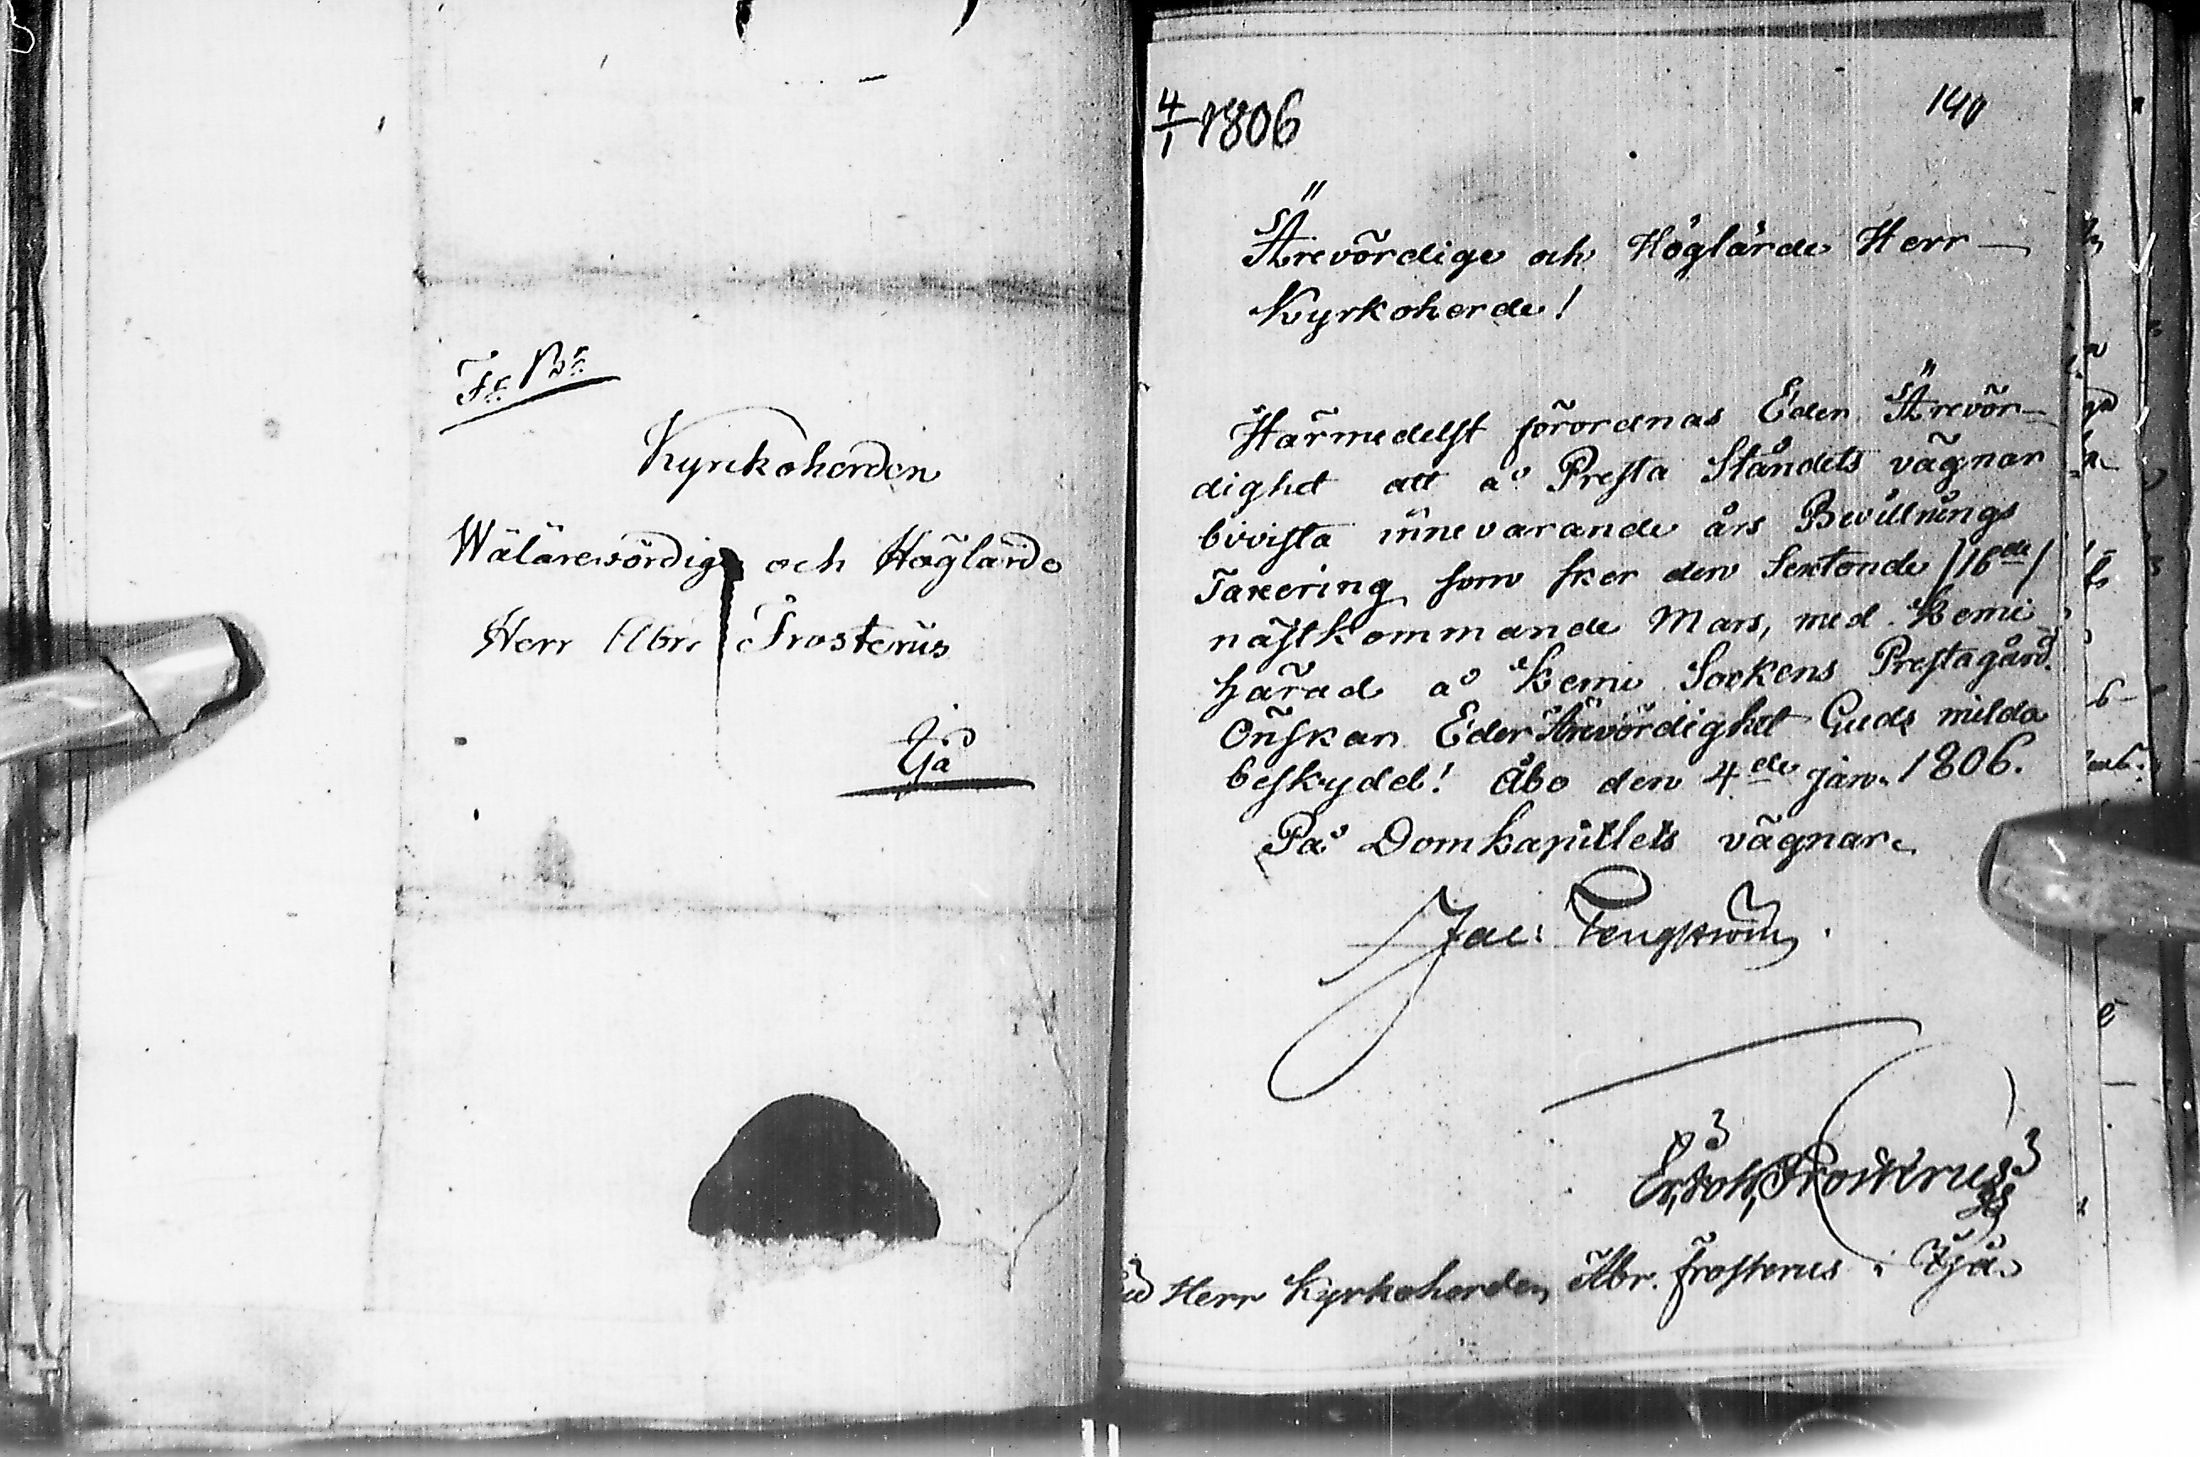 Fr. Br.
Kyrckoherden
Wälärewördige och Höglärde
Herr Abr. Frosterus
Ijå
4/1 1806
140
Ärevördige och Höglärde Herr
Kyrkoherde!
Härmedelst förordnas Eder Ärevör-
dighet att å Presta Ståndets vägnar
bivista innevarande års Bevillnings
Taxering som sker den Sextonde /16de/
nästkommande Mars, med Kemi
härad å Kemi Sockens Prestagård.
Önskar Eder Ärevördighet Guds milda
beskydd! Åbo den 4de Jan. 1806.
På Domkapitlets vägnar.
Jac: Tengström.
Herr Kyrkoherden Abr. Frosterus i Ijå.